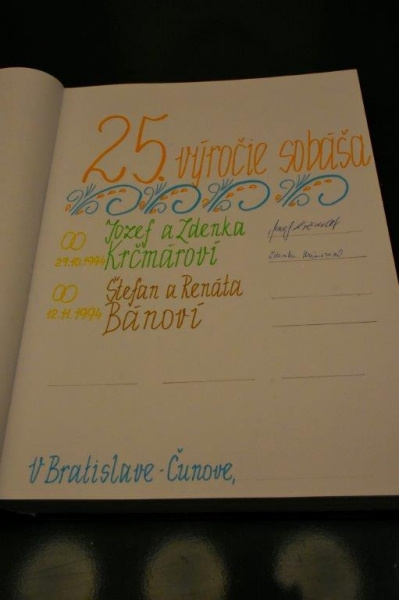 25. výročie sobáša
Jozef a Zdenka
29.10.1994 Krčmároví
Štefan a Renáta
12.11.1994 Bánoví
V Bratislave - Čunove,